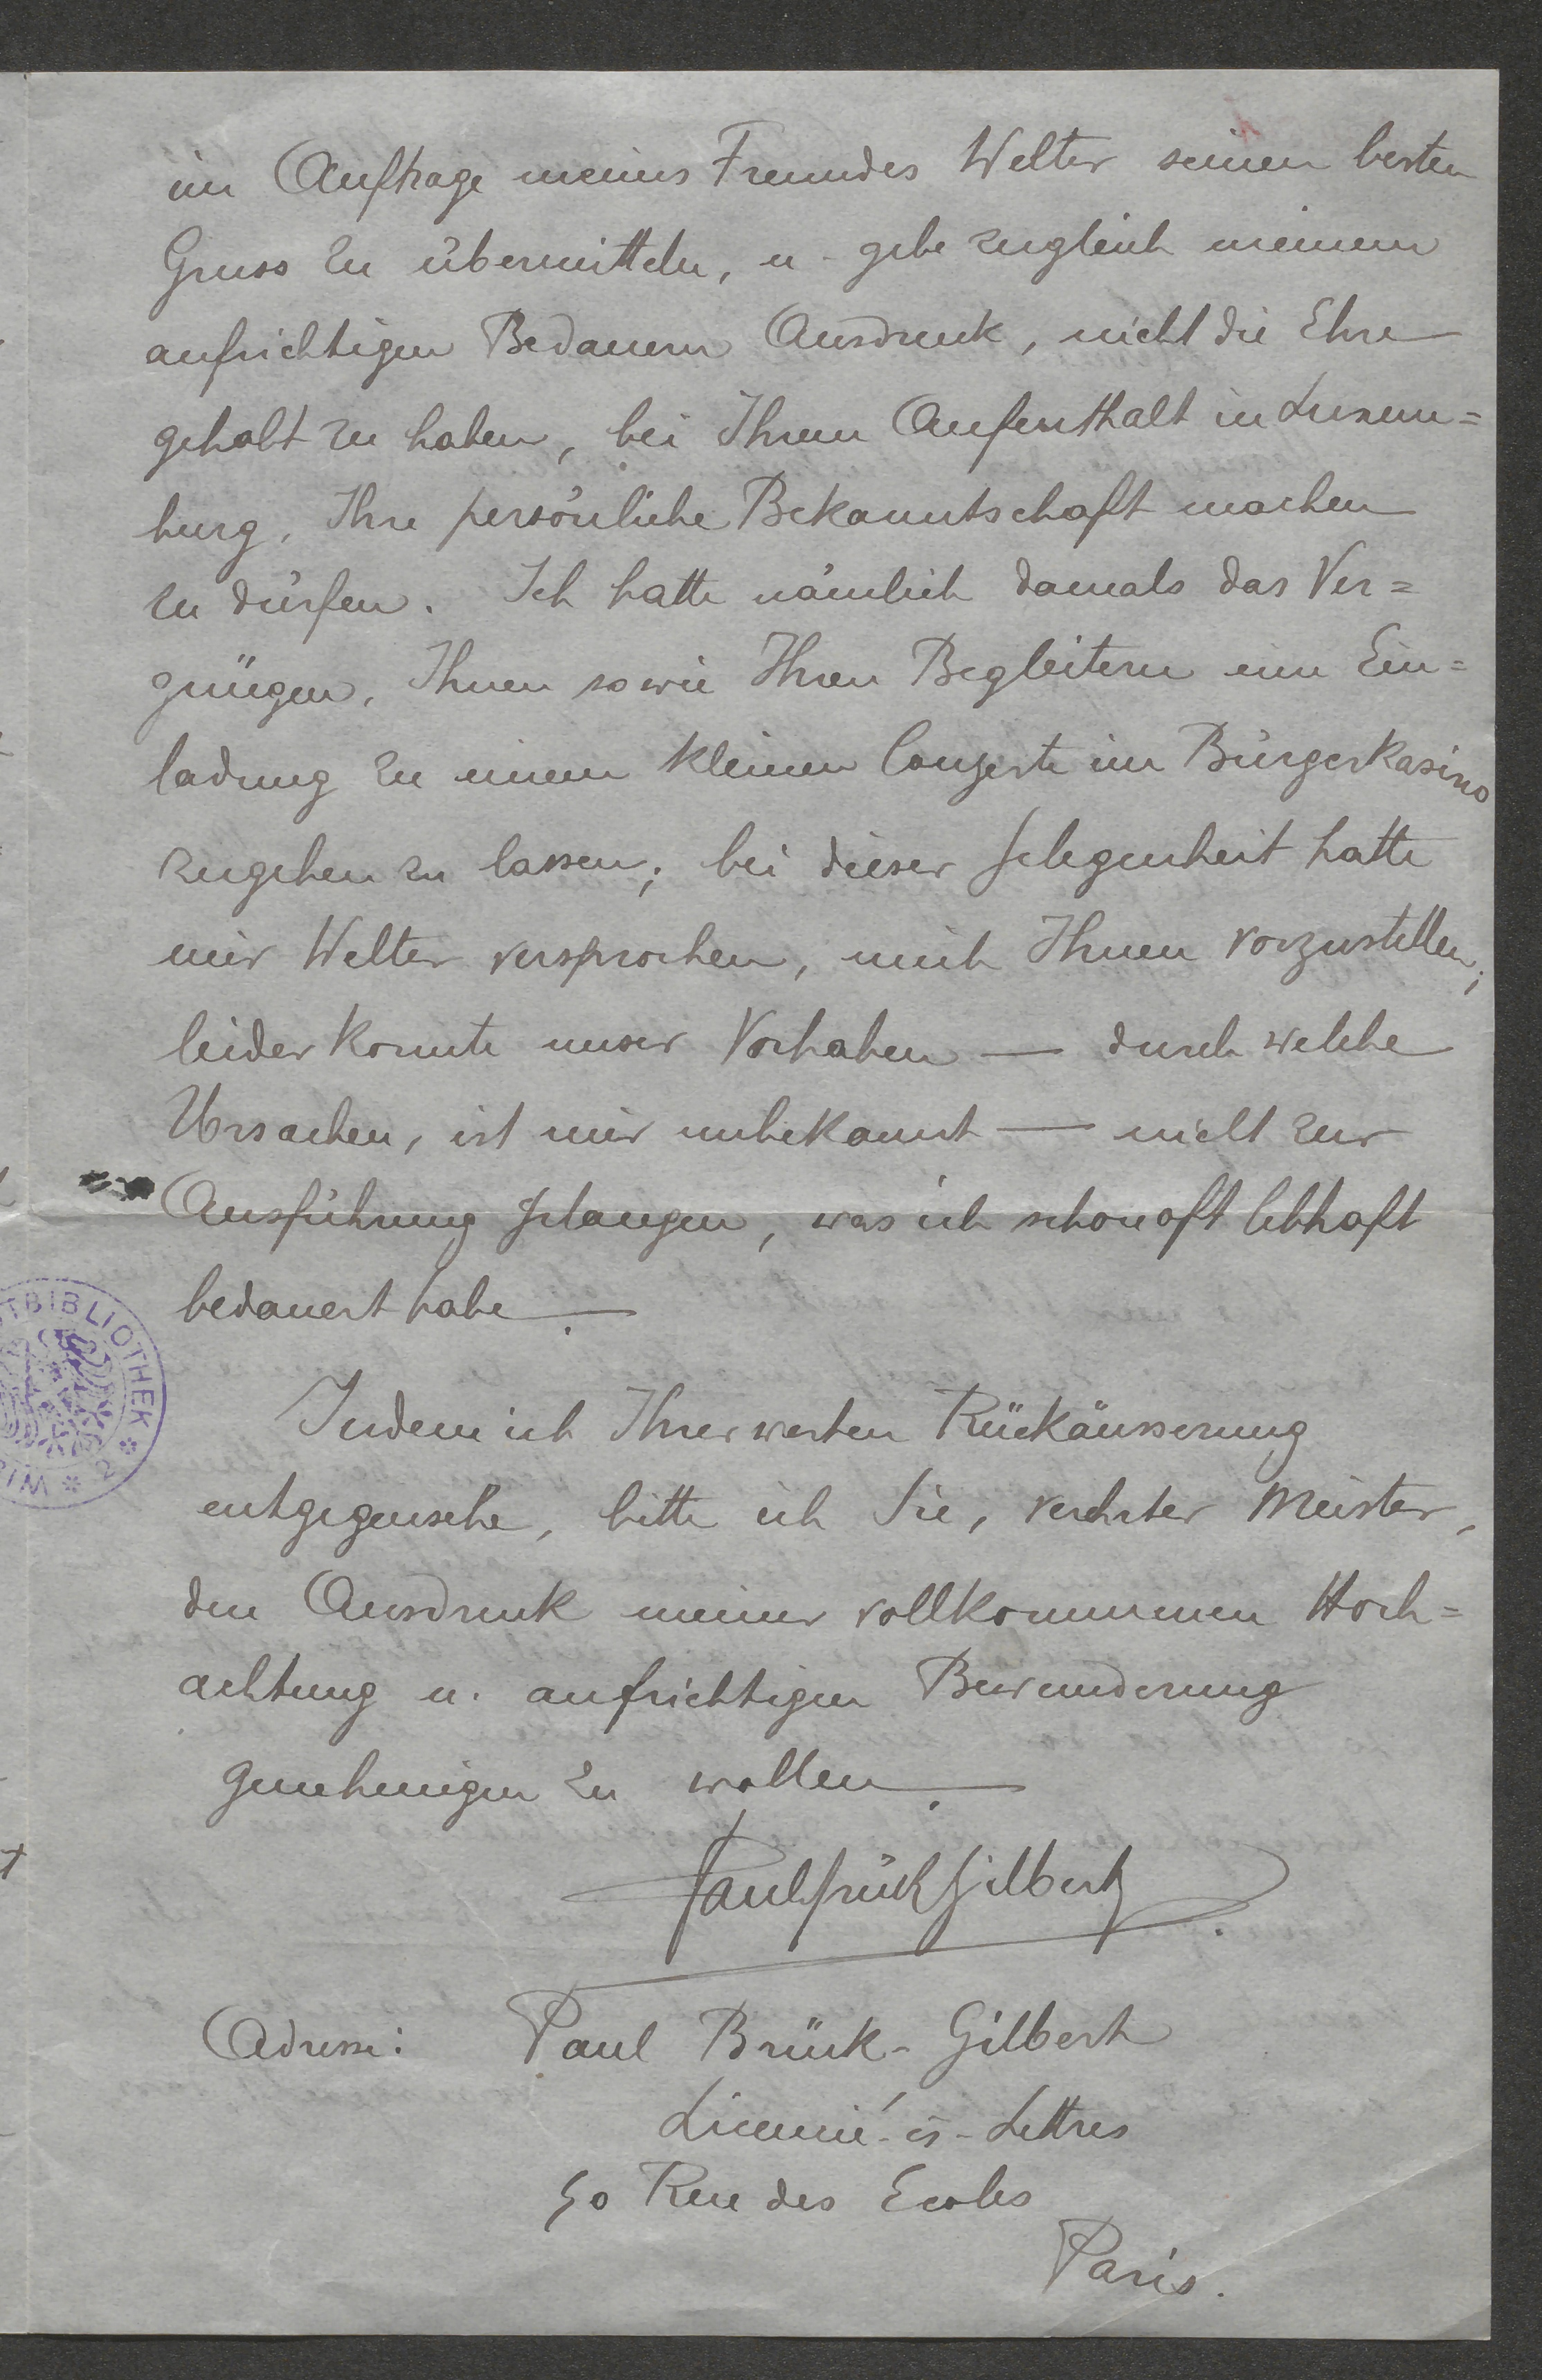 im Auftrage meines Freundes Welter seinen besten
Gruss zu übermitteln, u. gebe zugleich meinem
aufrichtigen Bedauern Ausdruck, nicht die Ehre
gehabt zu haben, bei Ihrem Aufenthalt in Luxem=
burg, Ihre persönliche Bekanntschaft machen
zu dürfen. Ich hatte nämlich damals das Ver=
gnügen, Ihnen sowie Ihren Begleitern eine Ein=
ladung zu einem kleinen Conzerte im Bürgerkasino
zugehen zu lassen; bei dieser Gelegenheit hatte
mir Welter versprochen, mich Ihnen vorzustellen;
leider konnte unser Vorhaben — durch welche
Ursachen, ist mir unbekannt — nicht zur
Ausführung gelangen, was ich schon oft lebhaft
bedauert habe.
TBIBLIOTHEK * 2 * WI
Indem ich Ihrer werten Rückäusserung
entgegensehe, bitte ich Sie, verehrter Meister,
den Ausdruck meiner vollkommenen Hoch=
achtung u. aufrichtigen Bewunderung
genehmigen zu wollen.
Paul Brück Gilbert
Adresse: Paul Brück-Gilbert
Licencié-ès-Lettres
50 Rue des Ecoles
Paris.